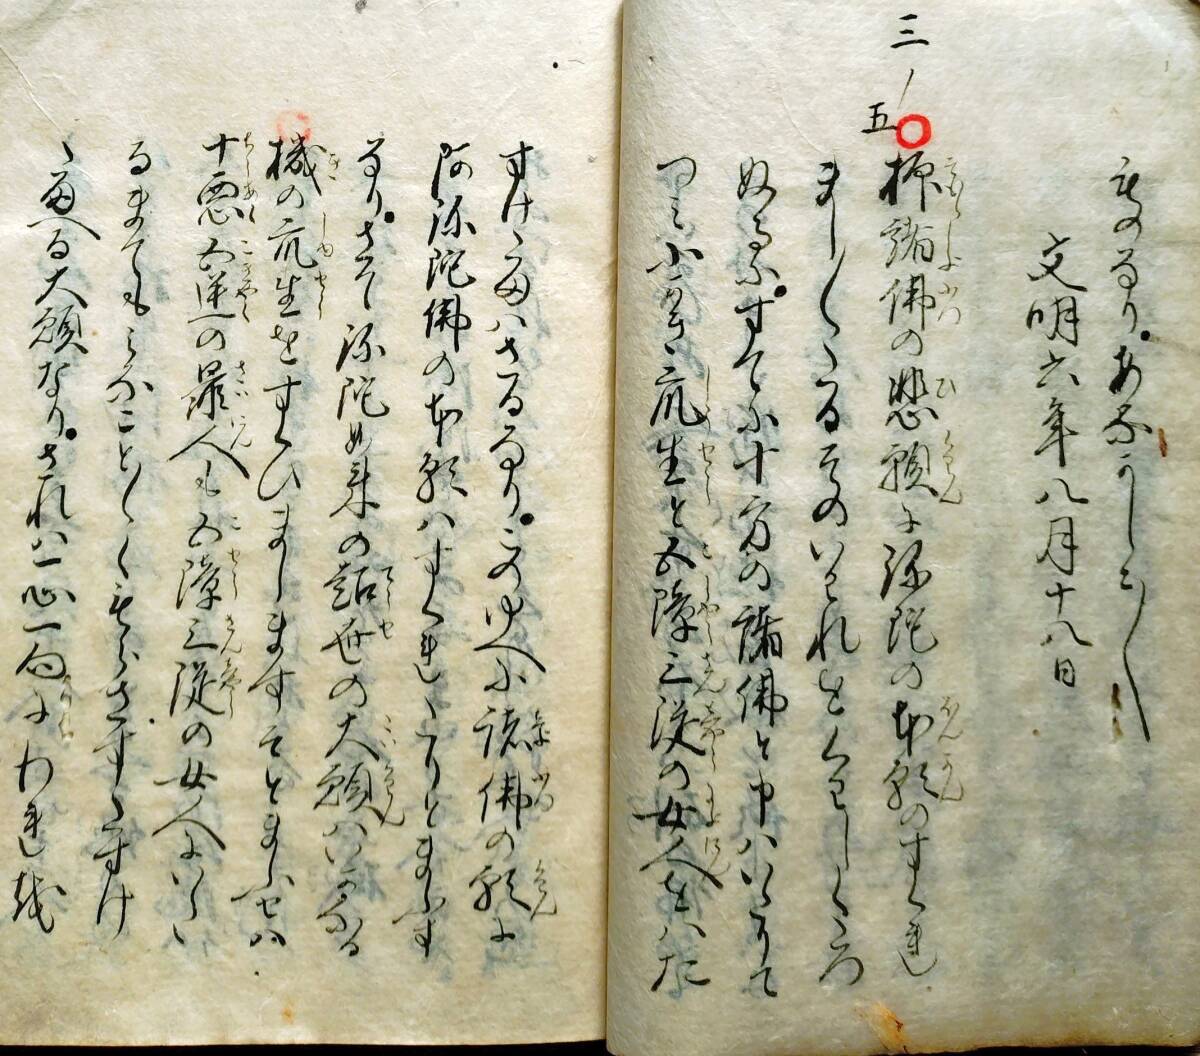 ものなり。あなかしこ〱
文明六年八月十八日
三ノ五
抑諸佛の悲願に弥陀の本願のすくれ
まし〱たるそのいはれをくはしくたつ
ぬるに。すてに十方の諸佛と申はいたりて
つみふかき衆生と五障三従の女人をはた
すけたまはさるなり。このゆへに諸佛の願に
阿弥陀佛の本願はすくれたりとまふす
なり。さて弥陀如来の超世の大願はいかなる
機の衆生をすくひましますそとまふせは
十悪五逆の罪人も五障三従の女人にいた
るまてもみなこと〱くもらさすたすけ
たまへる大願なり。されは一心一向にわれを